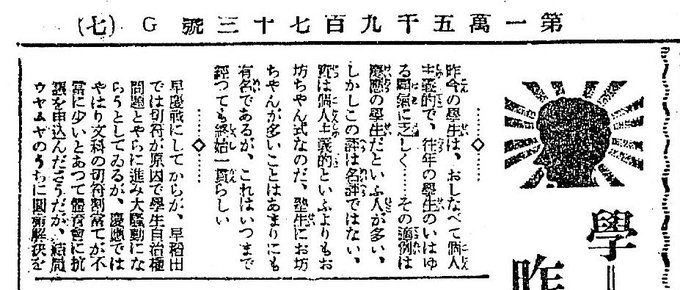 第一萬五千九百七十三號 G (七)
學
昨
昨今の學生は、おしなべて個人
主義的で、往年の學生のいはゆ
る覇氣に乏しく……その適例は
慶應の學生だといふ人が多い、
しかしこの評は名評ではない、
實は個人主義的といふよりもお
坊ちやん式なのだ、塾生にお坊
ちやんが多いことはあまりにも
有名であるが、これはいつまで
經つても終始一貫らしい
早慶戰にしてからが、早稻田
では切符が原因で學生自治權
問題とやらに進み大騷動にな
らうとしてゐるが、慶應では
やはり文科の切符割當てが不
當に少いとあつて體育會に抗
議を申込んださうだが、結局
ウヤムヤのうちに圓滿解決を